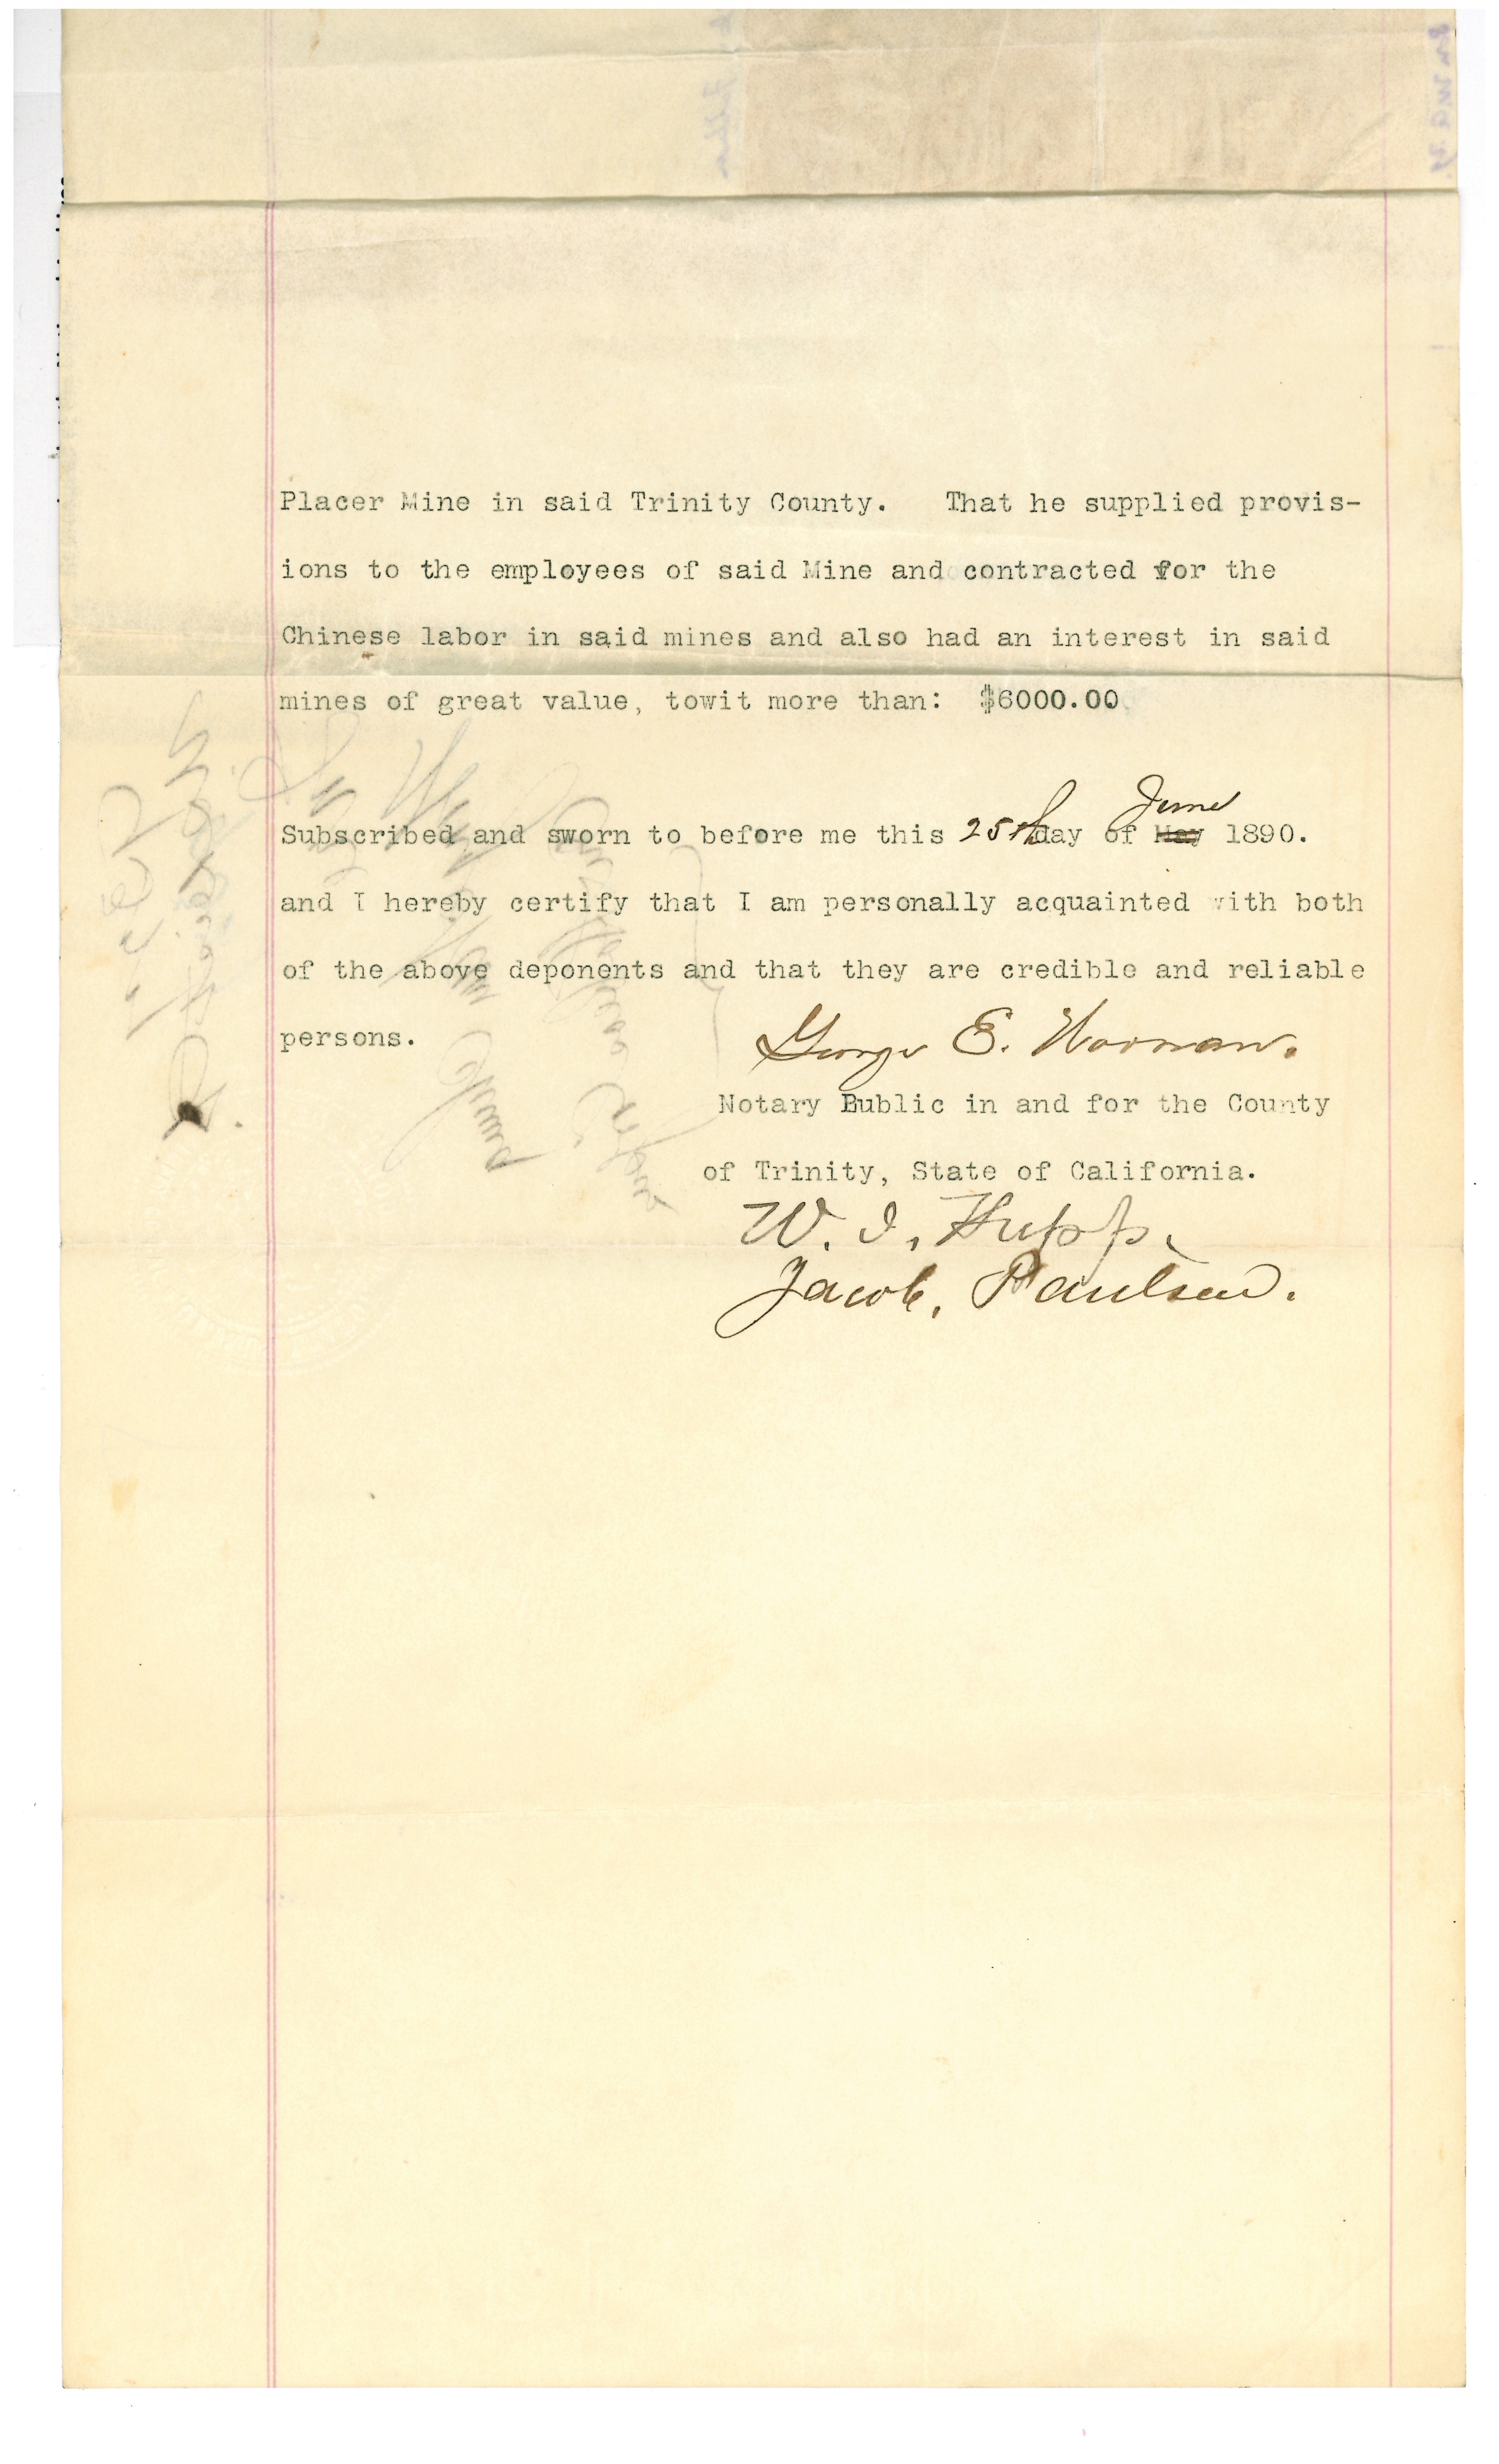 Placer Mine in said Trinity County. That he supplied provis-
ions to the employees of said Mine and contracted for the
Chinese labor in said mines and also had an interest in said
mines of great value, towit more than: $6000.00
June
Subscribed and sworn to before me this 25th day of May 1890.
and I hereby certify that I am personally acquainted with both
of the above deponents and that they are credible and reliable
persons.
George E. Noonan.
Notary Bublic in and for the County
of Trinity, State of California.
W. I. Hupp.
Jacob. Paulsen.